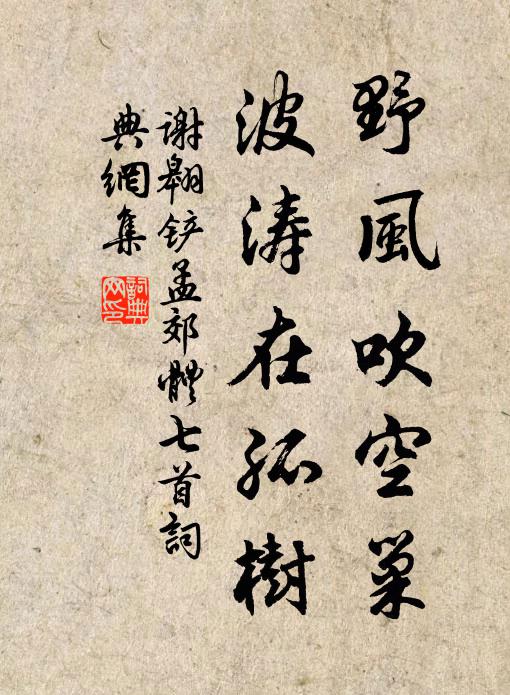 野風吹空巢
波濤在孤樹
謝翱铲孟郊體七首詞
典網集
詞典
网印